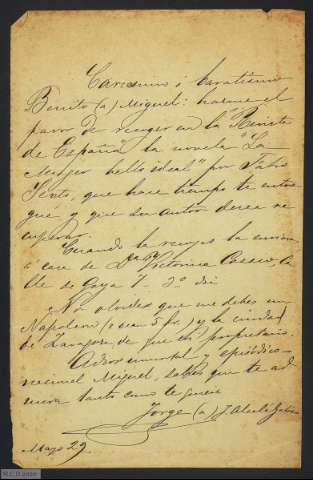 Carisimo i baratisimo
Benito (a) Miguel: hazme el
favor de recoger en la "Revista
de España" la novela "La
Mujer bello ideal" por Fabio
que hace tiempo te entre
gue y que su autor desea re
cuperar.
Cuando la recojas la envias
á casa de Dª Victorina ca
lle de Goya 7 - 2º
No olvides que me debes un
Napoleon (o sean 5 fs.) y la ciudad
de Zaragoza de que es propietario.
Adios inmortal y episódico
nacional Miguel, sabes que te ad
mira tanto como te quiere
Jorge (a) J. Alcalá Galiano
Mayo 29